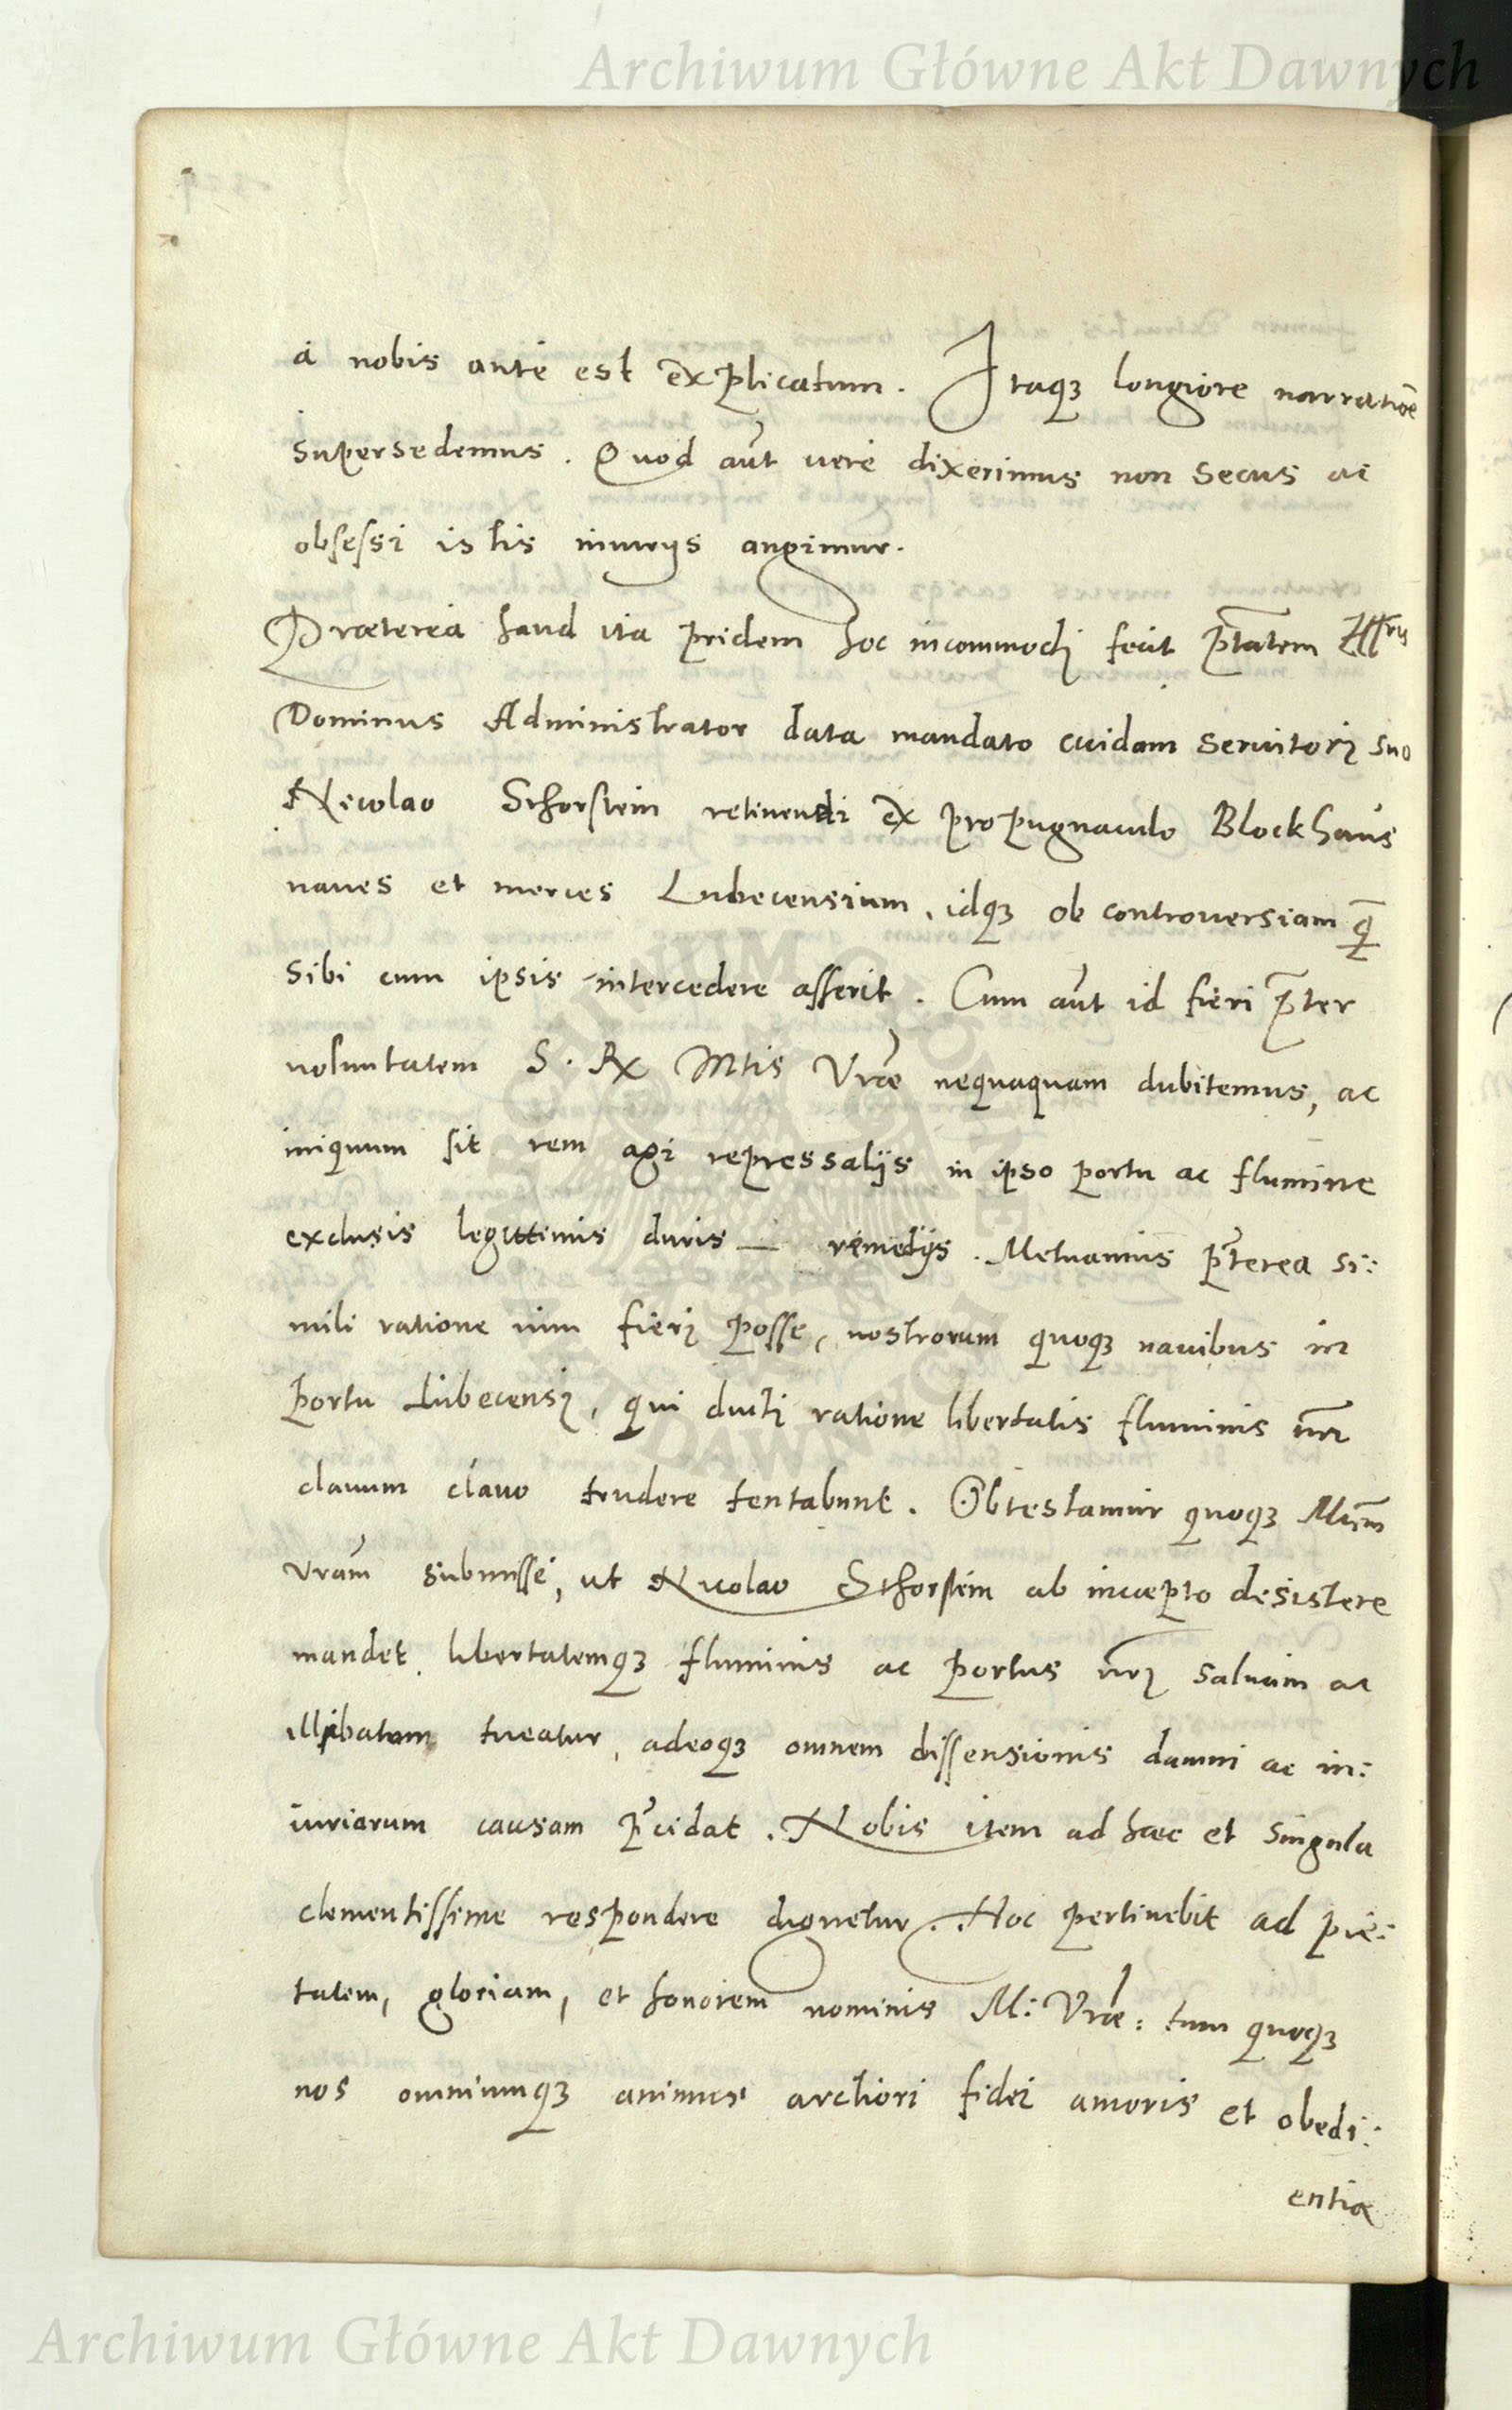 Archiwum Główne Akt Dawnych
à nobis ante est explicatum. Itaqꝫ longiore narratioē
supersedemus. Quod aūt verè dixerimus non secus ac
obsessi istis iniurijs angimur.
Præterea haud ita pridem hoc incommodi fecit p̄tatem Illris
Dominus Administrator data mandato cuidam seruitori suo
Nicolao Schorstein retinendi ex propugnaculo Blockhaus
naues et merces Lubecensium, idqꝫ ob controuersiam q̄
sibi cum ipsis intercedere asserit. Cum aūt id fieri p̄ter
voluntatem S. Rx Mtis Vræ nequaquam dubitemus, ac
iniquum sit rem agi repressalijs in ipso portu ac flumine
exclusis legittimis duris remedijs. Metuamus p̄terea si:
mili ratione vim fieri posse, nostrorum quoqꝫ nauibus in
portu Lubecensi, qui ducti ratione libertatis fluminis nrī
clauum clauo trudere tentabunt. Obtestamur quoqꝫ Mtem
vram submissè, ut Nicolao Schorstein ab incæpto desistere
mandet, libertatemqꝫ fluminis ac portus nrī saluam ac
illibatam tueatur, adeoqꝫ omnem dissensionis damni ac in:
iuriarum causam p̄cidat. Nobis item ad hæc et singula
clementissime respondere dignetur. Hoc pertinebit ad pie:
tatem, gloriam, et honorem nominis M: Vræ: tum quoqꝫ
nos omniumqꝫ animus arctiori fidei amoris et obedi:
entia
ARCHIWUM GŁÓWNE AKT DAWNYCH
Archiwum Główne Akt Dawnych